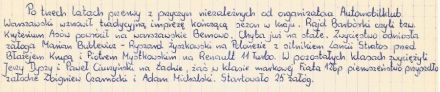 Po trzech latach przerwy z przyczyn niezależnych od organizatora Automobilklub
Warszawski wznowił tradycyjną imprezę kończącą sezon w kraju. Rajd Barbórki czyli tzw.
Kryterium Asów powrócił na warszawskie Bemowo. Chyba już na stałe. Zwycięstwo odniosła
załoga Marian Bublewicz - Ryszard Żyszkowski na Polonezie z silnikiem Lancii Stratos przed
Błażejem Krupą i Piotrem Mystkowskim na Renault 11 Turbo. W pozostałych klasach zwyciężyli
Jerzy Dyszy i Paweł na Ładzie, zaś w klasie markowej Fiata 126p pierwszeństwo przypadło
załodze Zbigniew Czarnecki i Adam Michalski. Startowało 25 załóg.